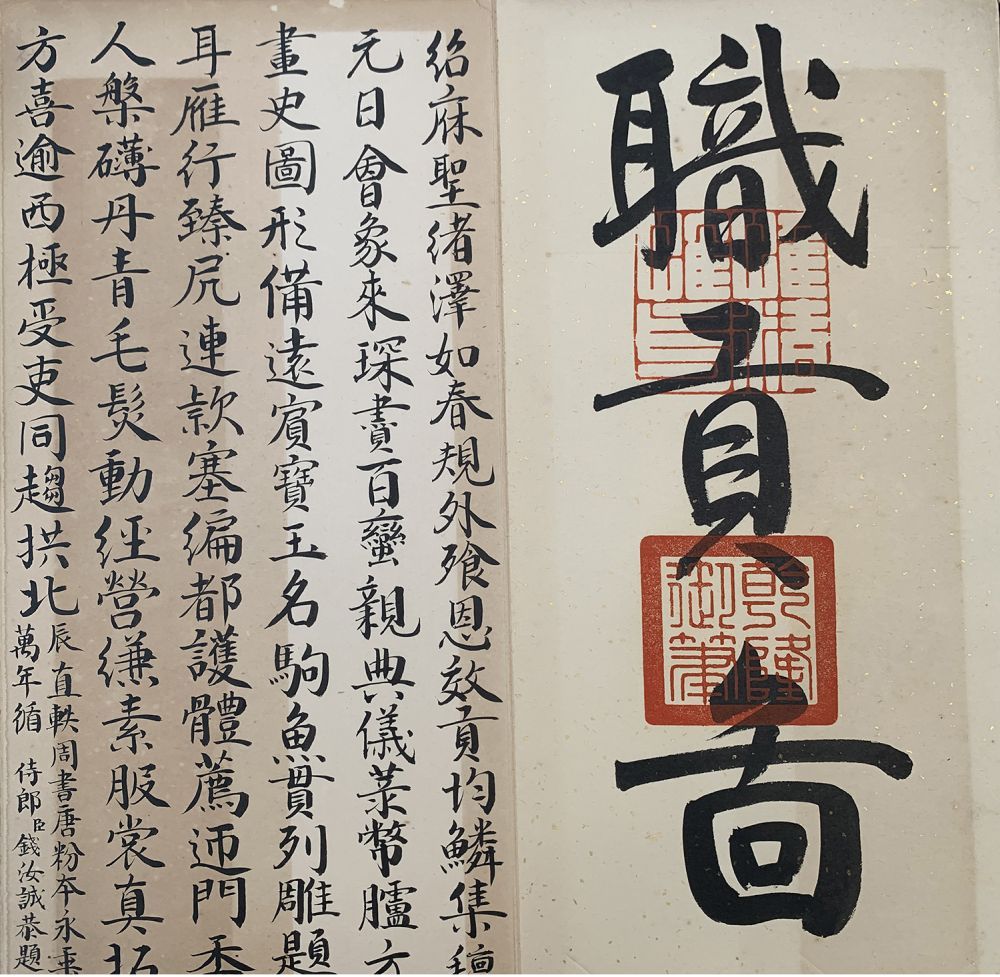 職貢啚
乾隆御筆
紹庥聖緒澤如春規外飱恩效貢均鱗集
元日會象來琛賮百蠻親典儀菉幣臚方
畫史圖形備遠賔寶玉名駒魚貫列雕題
耳雁行臻尻連欵塞編都護體薦迊門
人槃礴丹青毛髮動經營縑素服裳真
方喜逾西極受吏同趨拱北
辰直軼周書唐粉夲永垂
萬年循 侍郎臣錢汝誠恭題